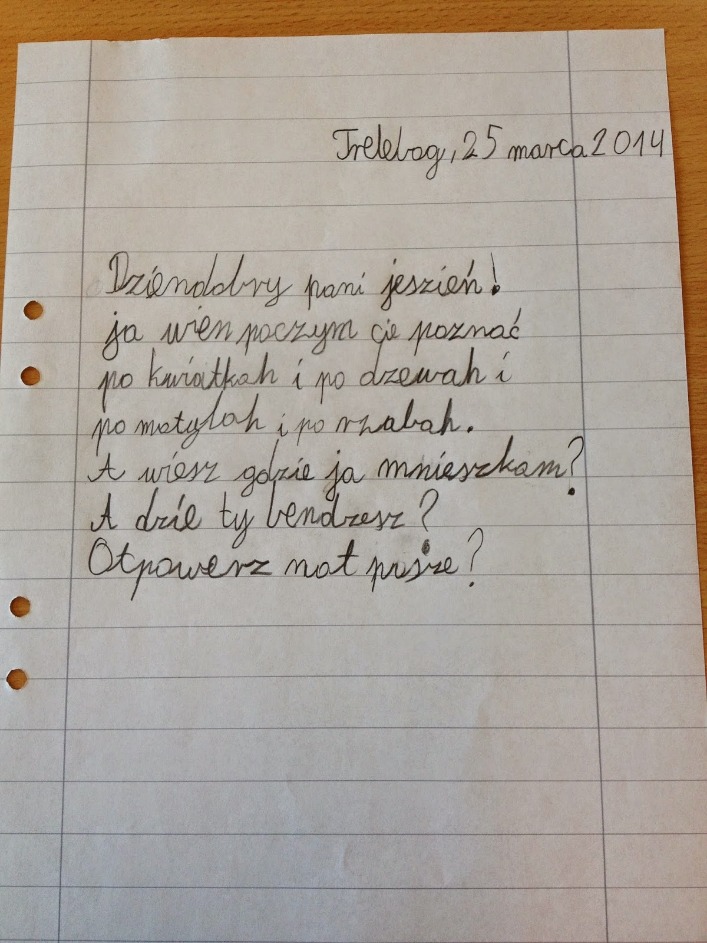 Trelebog, 25 marca 2014
Dziendobry pani jeszień!
ja wien poczym cie poznać
po kwiatkah i po dzewah i
po motylah i po rzabah.
A wiesz gdzie ja mnieszkam?
A dzie ty bendzesz?
Otpowerz mat prosze?